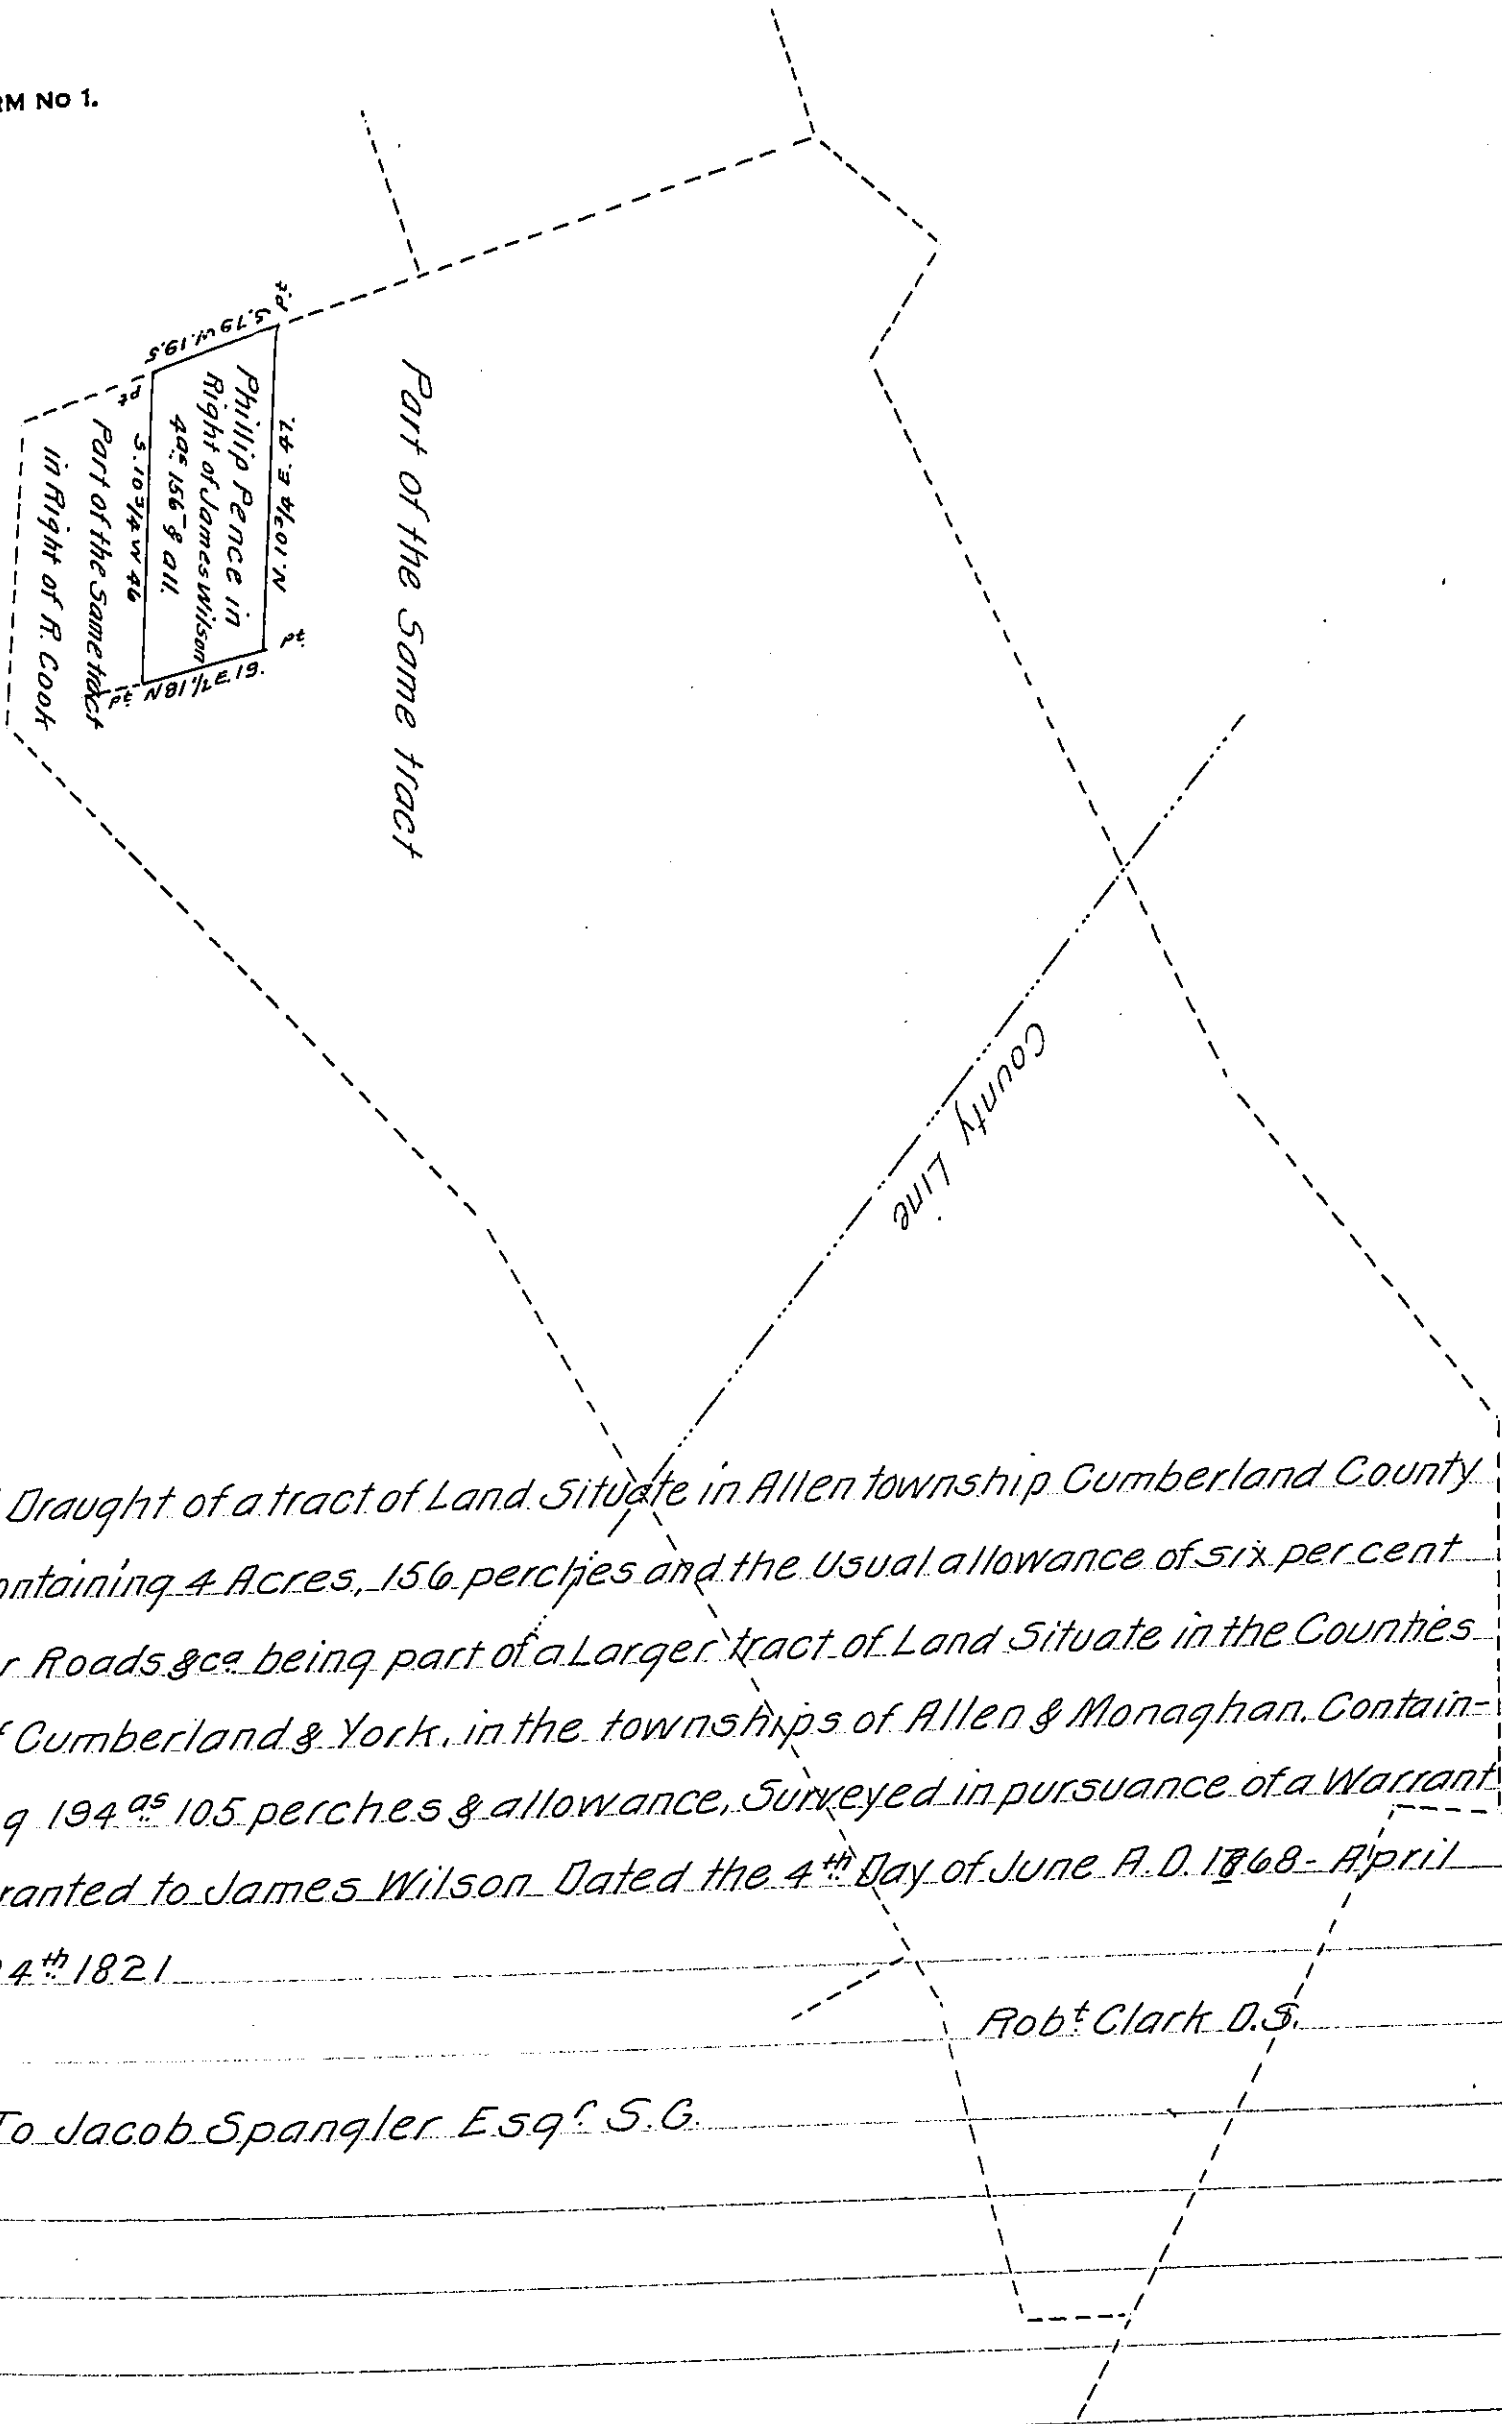 RM No 1.
pt.
S. 79 W. 19.5
pt
N. 10 3/4 E. 47.
Phillip Pence in
Right of James Wilson
4as. 156 & all.
S. 10 3/4 W 46
Part of the Same tract
in Right of R. Cook
pt.
pt. N 81 1/2 E. 19.
Part of the Same tract
County Line
Draught of a tract of Land Situate in Allen township Cumberland County
ontaining 4 Acres, 156 perches and the Usual allowance of six per cent
r Roads &ca being part of a Larger tract of Land Situate in the Counties
f Cumberland & York, in the townships of Allen & Monaghan. Contain-
g 194as 105 perches & allowance, Surveyed in pursuance of a Warrant
ranted to James Wilson Dated the 4th Day of June A.D. 1868 - April
4th 1821
Robt Clark D.S.
To Jacob Spangler Esqr S.G.